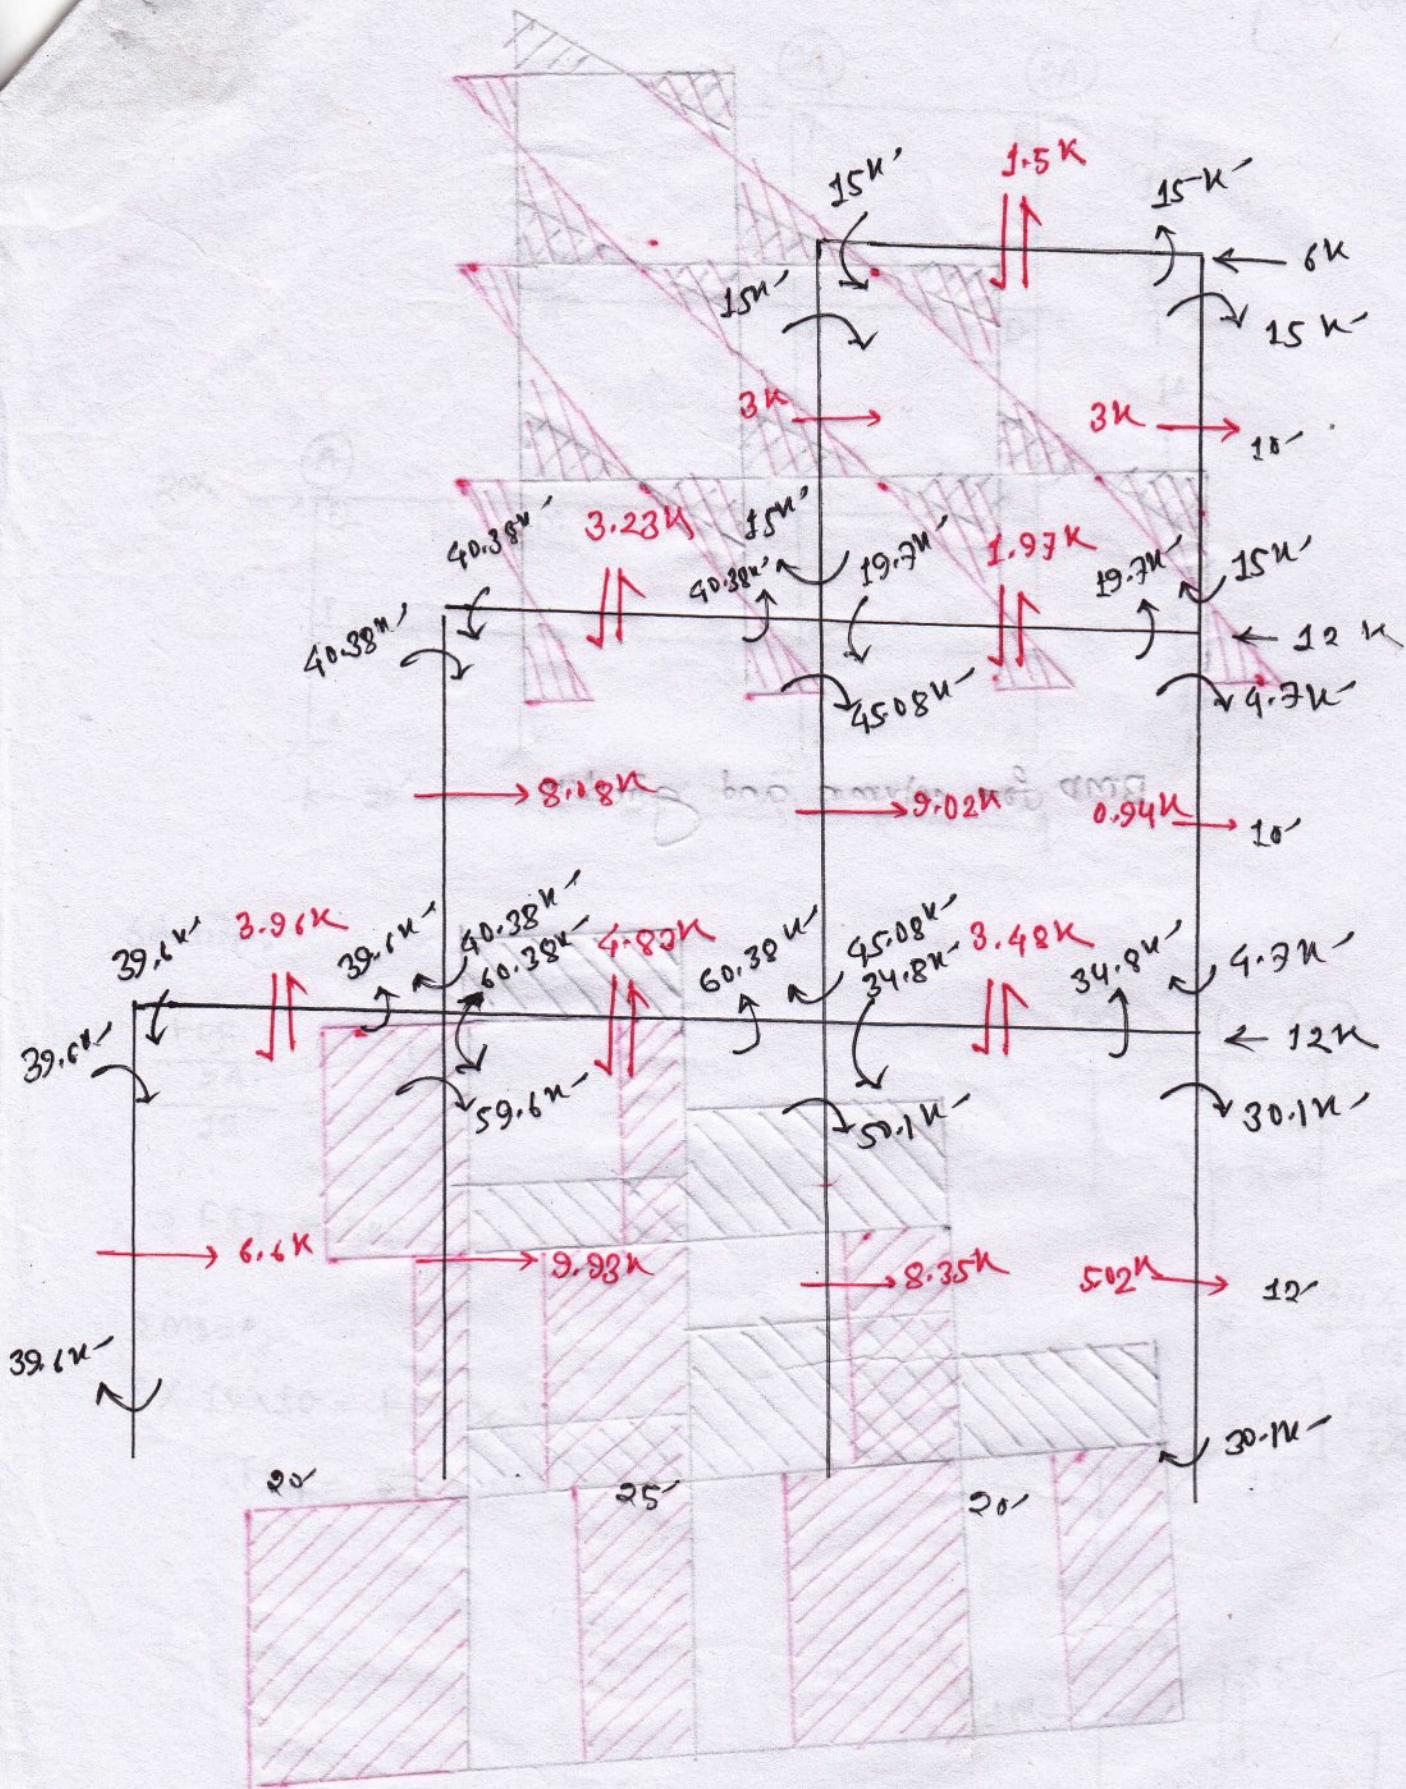 1.5K
15K' 15K'
6K
15K' 15K'
3K 3K 10'
40.38K' 3.23K 15K' 19.7K' 1.97K 19.7K' 15K'
40.38K'
40.38K' 12K
45.08K' 4.7K'
8.08K 9.02K 0.94K 10'
BMD for columns and
39.6K' 3.96K 39.6K' 40.38K' 60.38K' 4.83K 60.38K' 45.08K' 34.8K' 3.48K 34.8K' 4.7K'
39.6K' 12K
59.6K' 50.1K' 30.1K'
6.6K 9.93K 8.35K 5.02K 12'
39.6K' 30.1K'
20' 25' 20'